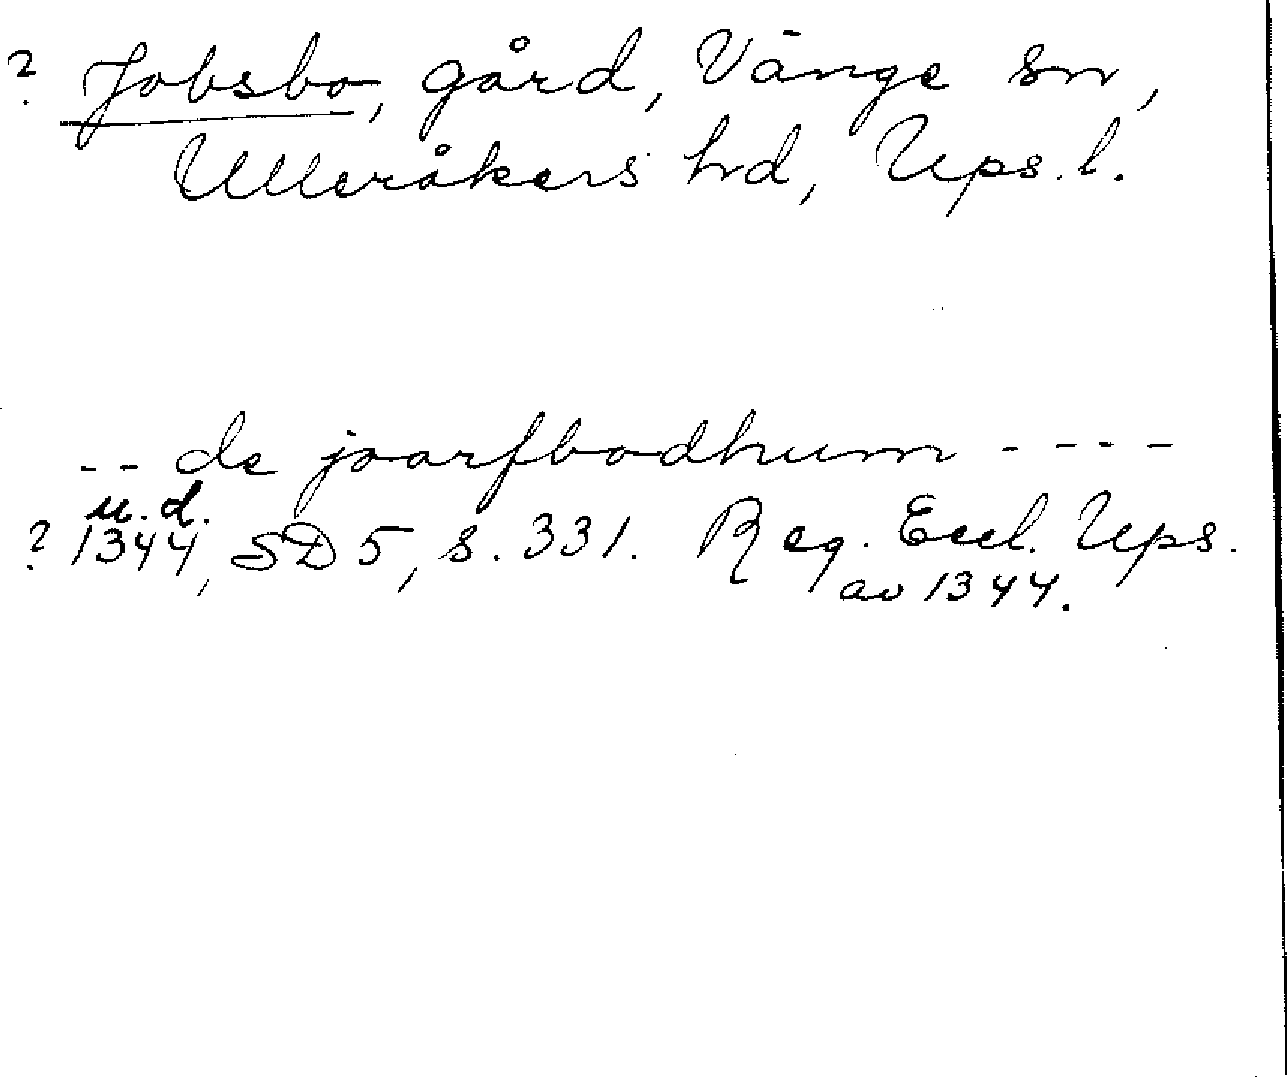 ? Jobsbo, gård, Vänge sn,
Ulleråkers hd, Ups. l.
-- de joarfbodhum ----
u.d.
? 1344, SD 5, s. 331. Reg. Eccl. Ups.
av 1344.